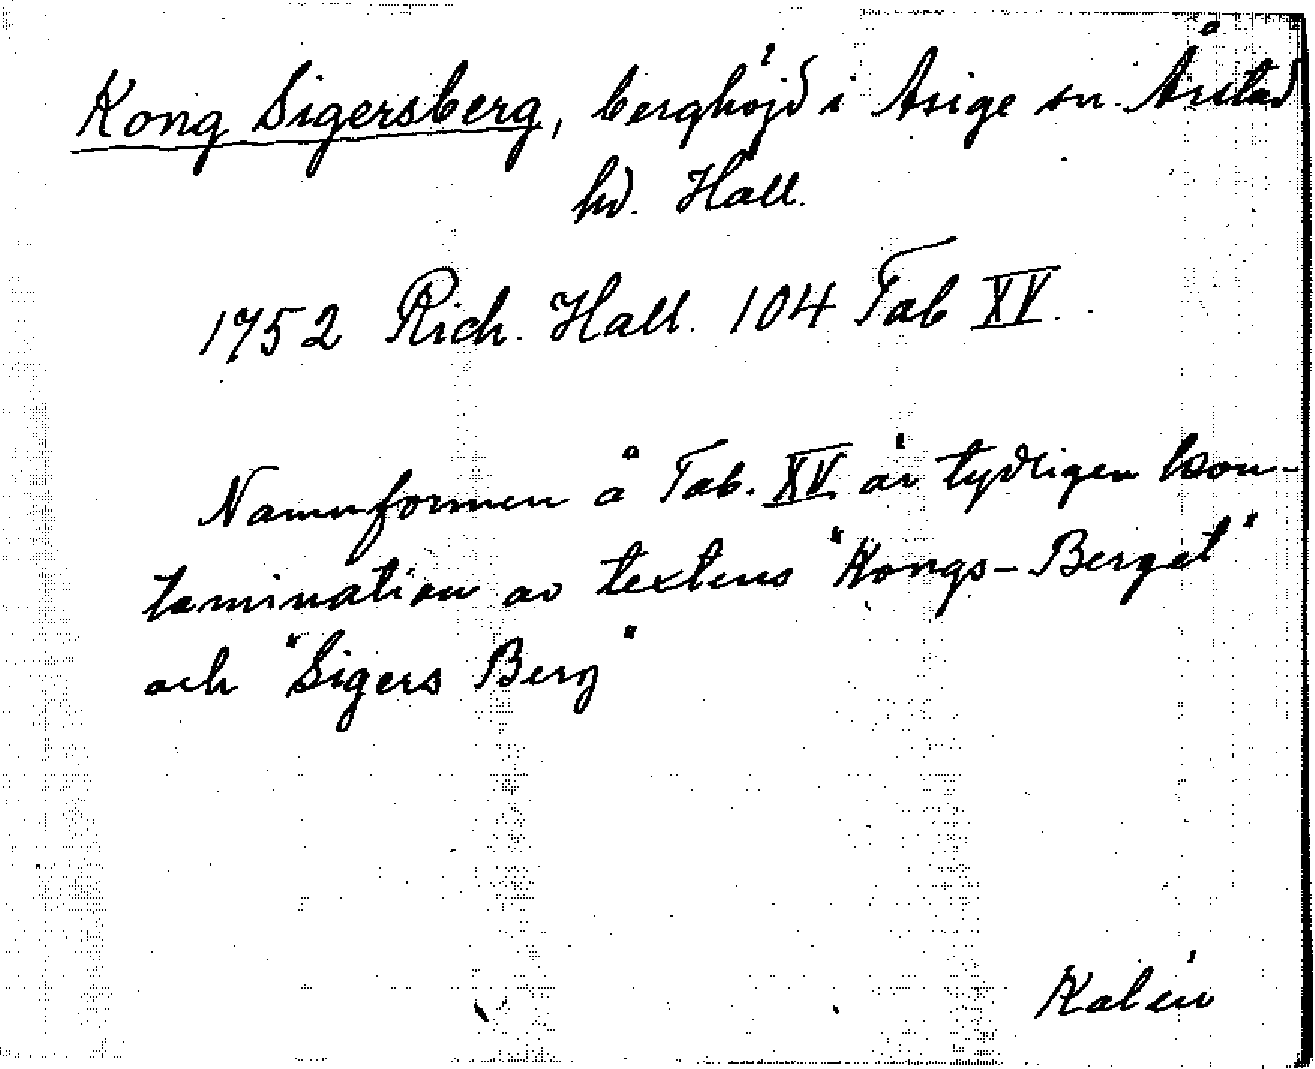 Kong Sigersberg, berghöjd i Asige sn. Årstad
hd. Hall.
1752 Rich. Hall. 104 Tab XV.
Namnformen å Tab. XV är tydligen kon-
tamination av textens "Kongs-Berget"
och "Sigers Berg"
Kalén